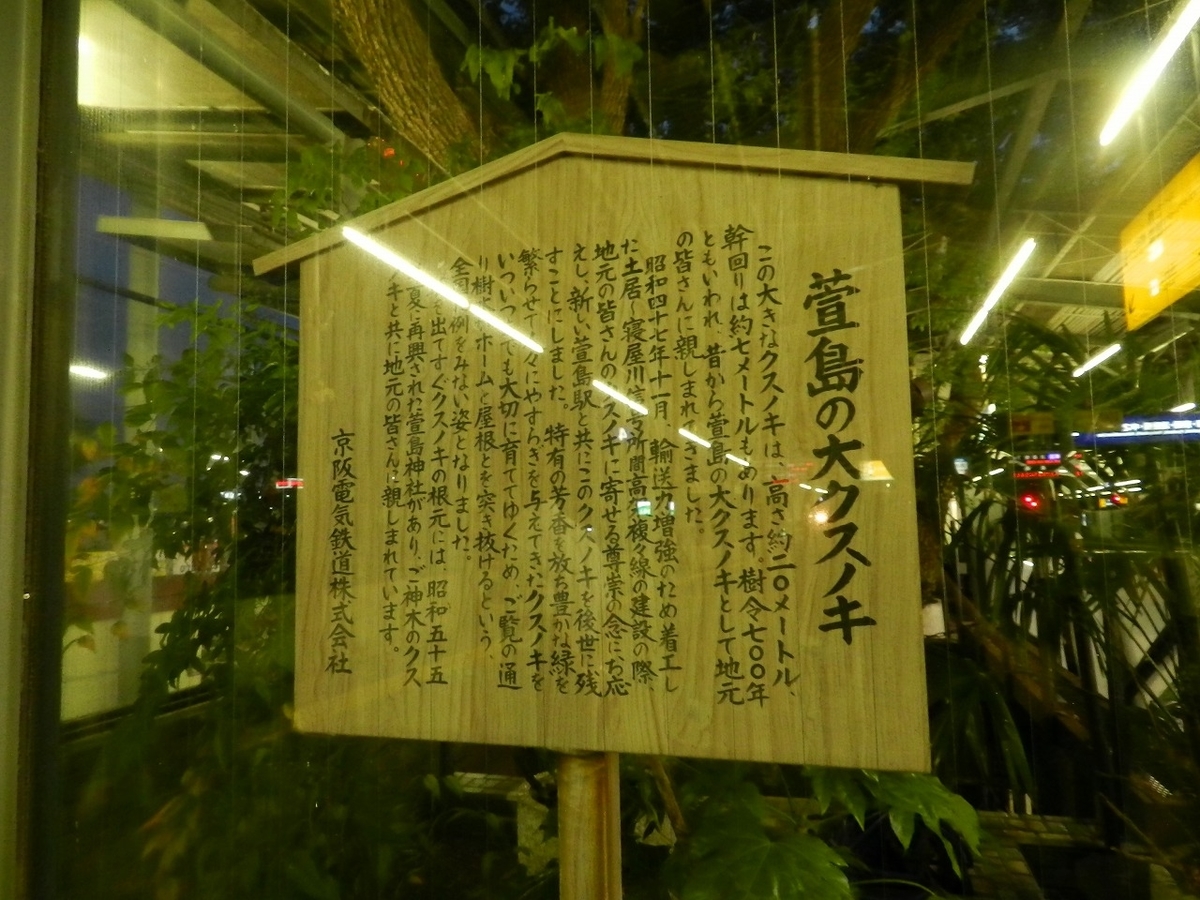 萱島の大クスノキ
この大きなクスノキは、高さ約二〇メートル、
幹回りは約七メートルもあります。樹令七〇〇年
ともいわれ、昔から萱島の大クスノキとして地元
の皆さんに親しまれてきました。
昭和四十七年十一月、輸送力増強のため着工し
た土居・寝屋川信号所間高架複々線の建設の際、
地元の皆さんのクスノキに寄せる尊崇の念にお応
えし、新しい萱島駅と共にこのクスノキを後世に残
すことにしました。特有の芳香を放ち豊かな緑を
繁らせて人々にやすらぎを与えてきたクスノキを
いついつまでも大切に育ててゆくため、ご覧の通
り樹木がホームと屋根とを突き抜けるという、
全国に例をみない姿となりました。
を出てすぐクスノキの根元には、昭和五十五
夏に再興された萱島神社があり、ご神木のクス
キと共に地元の皆さんに親しまれています。
京阪電気鉄道株式会社